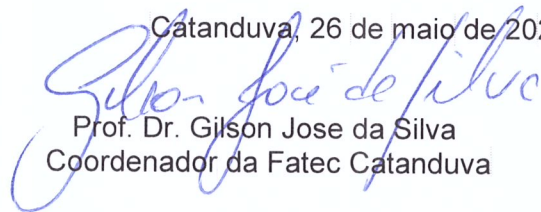 Catanduva, 26 de maio de 202
Gilson José da Silva
Prof. Dr. Gilson Jose da Silva
Coordenador da Fatec Catanduva